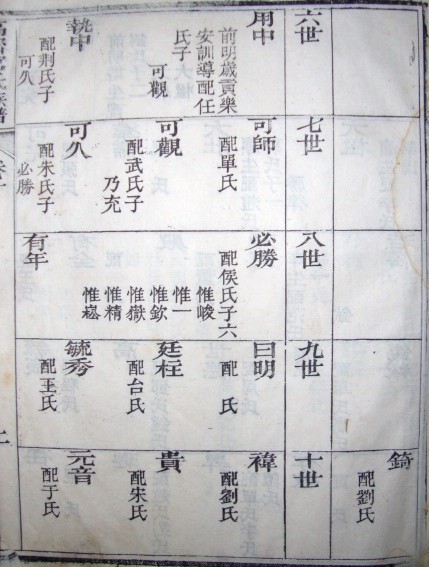 錡
配劉氏
六世
用中
前明歲貢樂
安訓導配任
氏子
可觀
執中
配荊氏子
可久
七世
可師
配單氏
可觀
配武氏子
乃充
可久
配朱氏子
必勝
八世
必勝
配侯氏子六
惟峻
惟一
惟欽
惟嶽
惟精
惟嵓
有年
九世
曰明
配 氏
廷柱
配台氏
毓秀
配王氏
十世
禕
配劉氏
貴
配朱氏
元音
配于氏